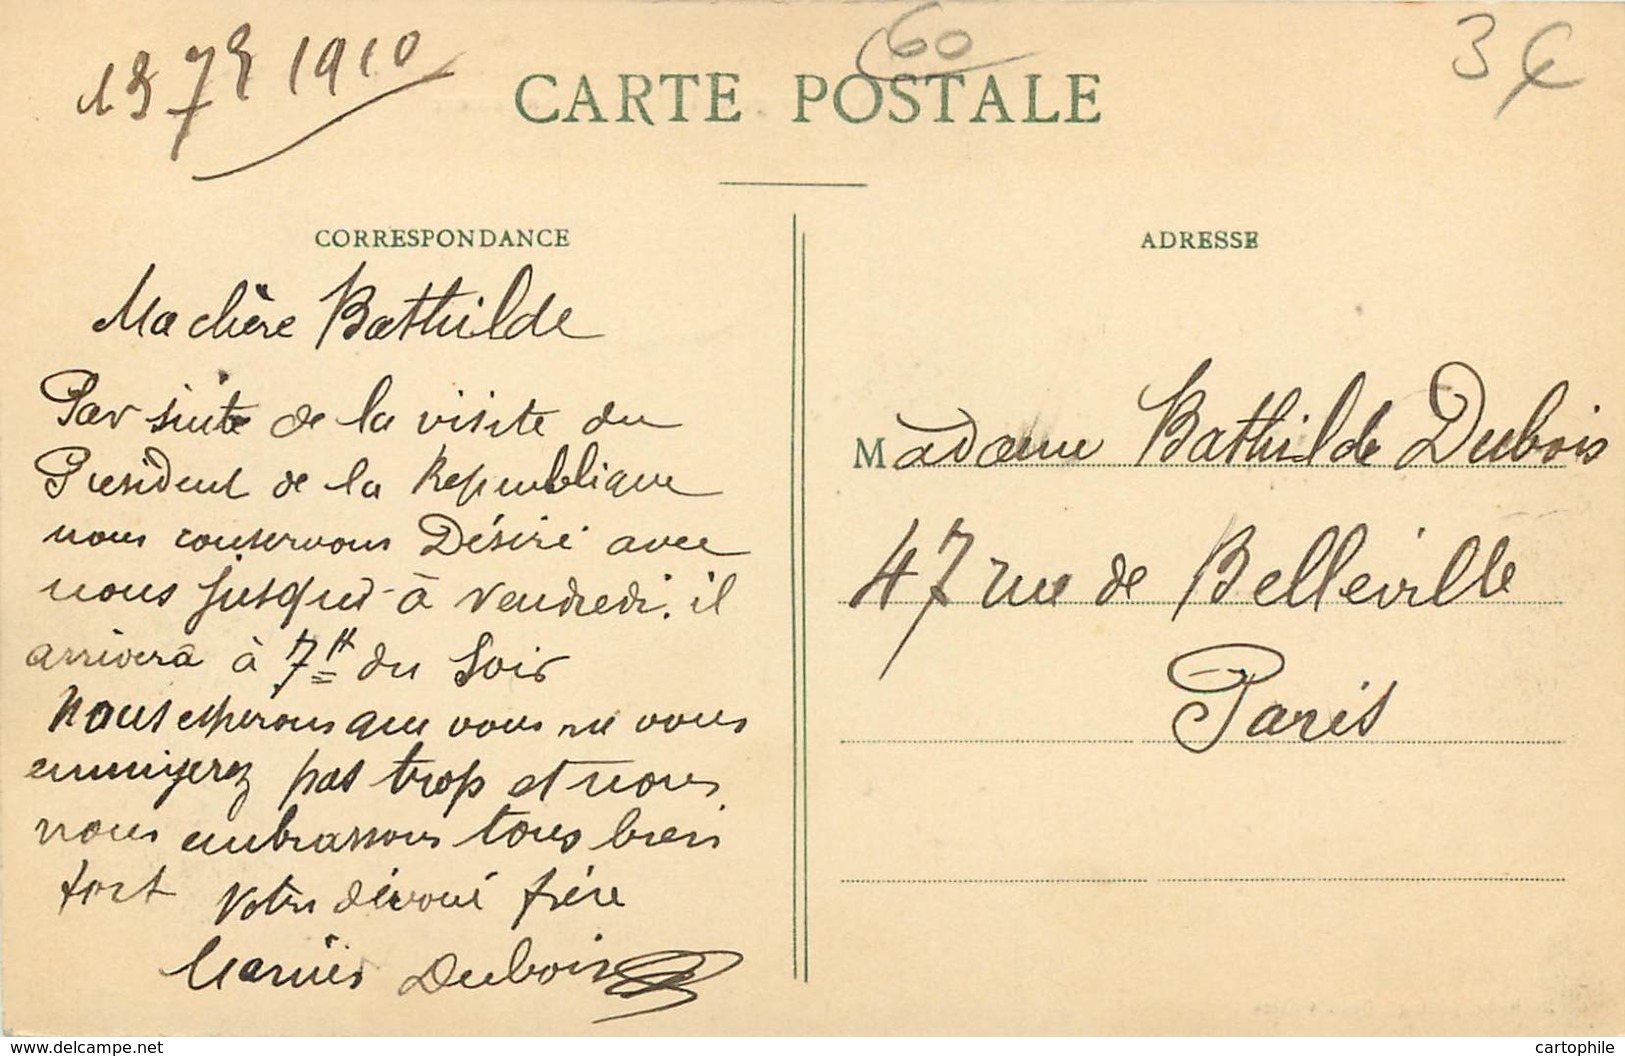 13 7e 1910
60
3€
CARTE POSTALE
CORRESPONDANCE
ADRESSE
Ma chère Bathilde
Par suite de la visite du
President de la Republique
nous conservons Désiré avec
nous jusqu'à vendredi. il
arrivera à 7H du soir
Nous esperons que vous ne vous
ennuyerez pas trop et nous
nous embrassons tous bien
fort Votre dévoué frère
Marius Dubois
Madame Bathilde Dubois
47 rue de Belleville
Paris
http://www.delcampe.net
cartophile